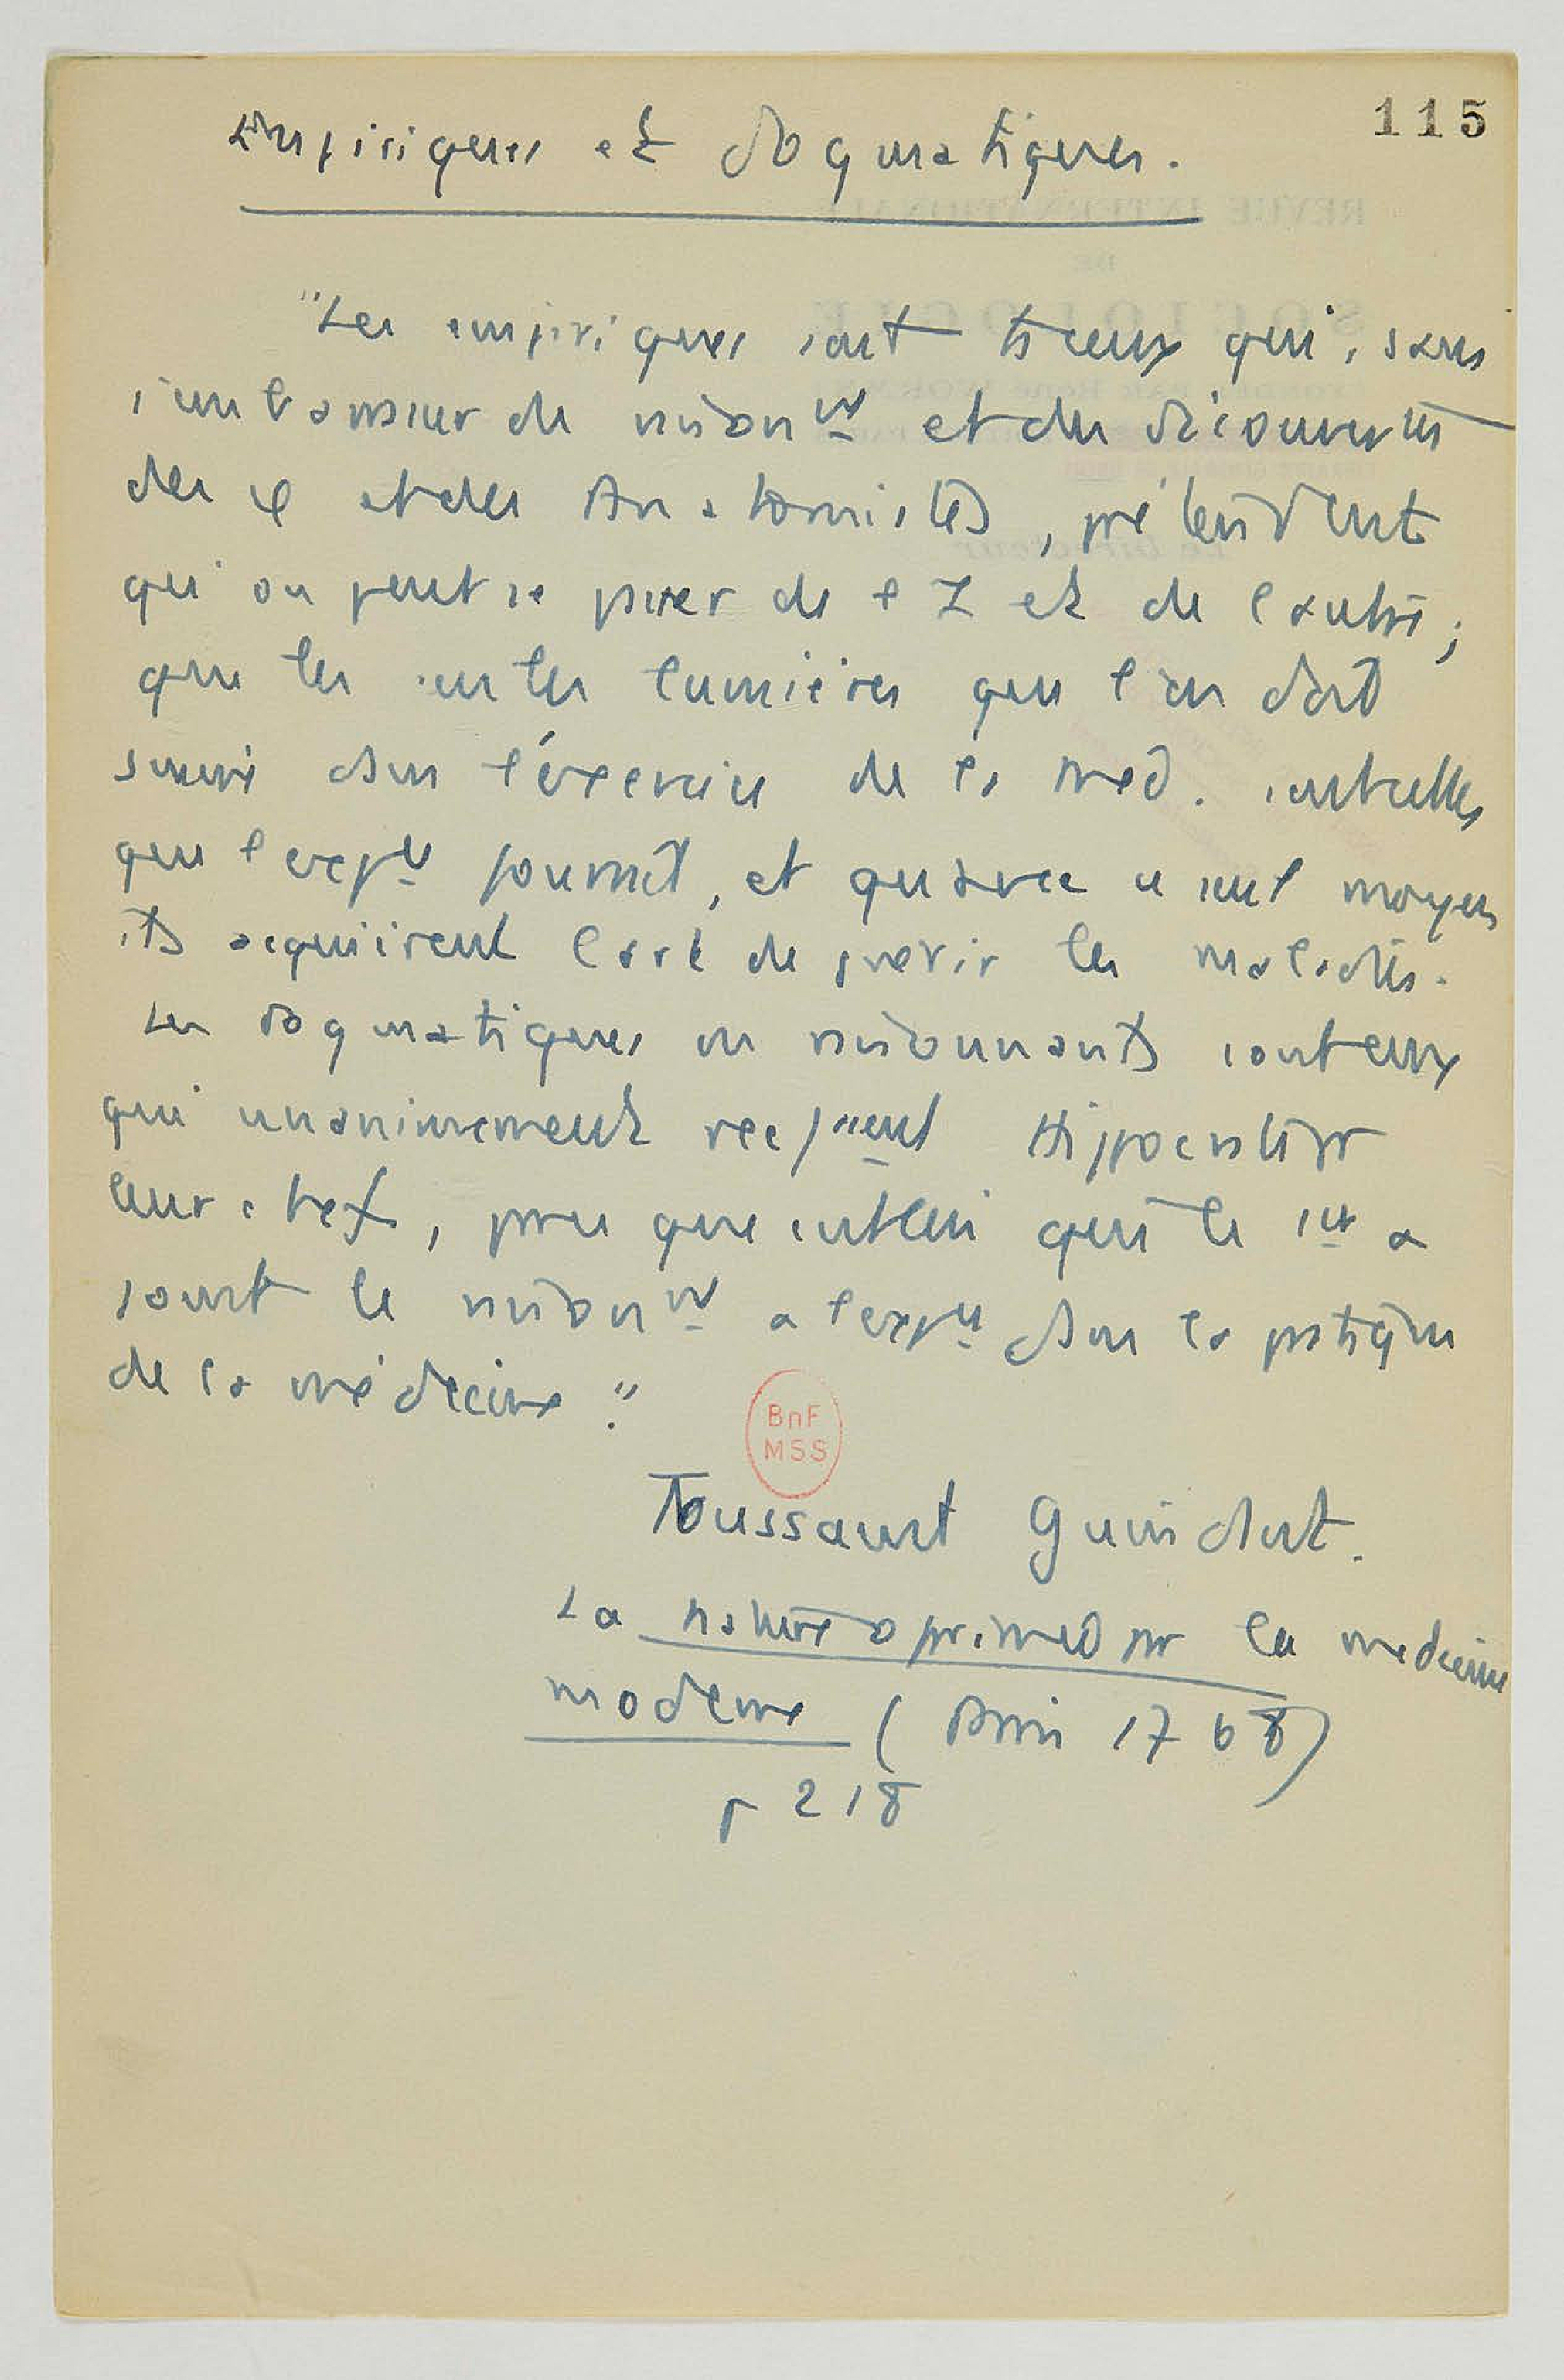 115
Empiriques et dogmatiques.
"Les empiriques sont ts ceux qui, sans
s'embarrasser du raisonnt et des découvertes
des φ et des Anatomistes, prétendent
qu'on peut se passer de l'1 et de l'autre ;
que les seules lumières que l'on doit
suivre dans l'exercice de la méd. sont celles
que l'expce fournit, et qu'avec ce seul moyen
ils acquièrent l'art de guérir les maladies.
Les dogmatiques ou raisonnants sont ceux
qui unanimement reconnent Hippocrate pr
leur chef, parce que c'est lui qui le 1er a
joint le raisonnt a l'expce dans la pratique
de la médecine."
BnF
MSS
Toussaint Guindant.
La nature opprimée par la médecine
moderne (Paris 1768)
p 218